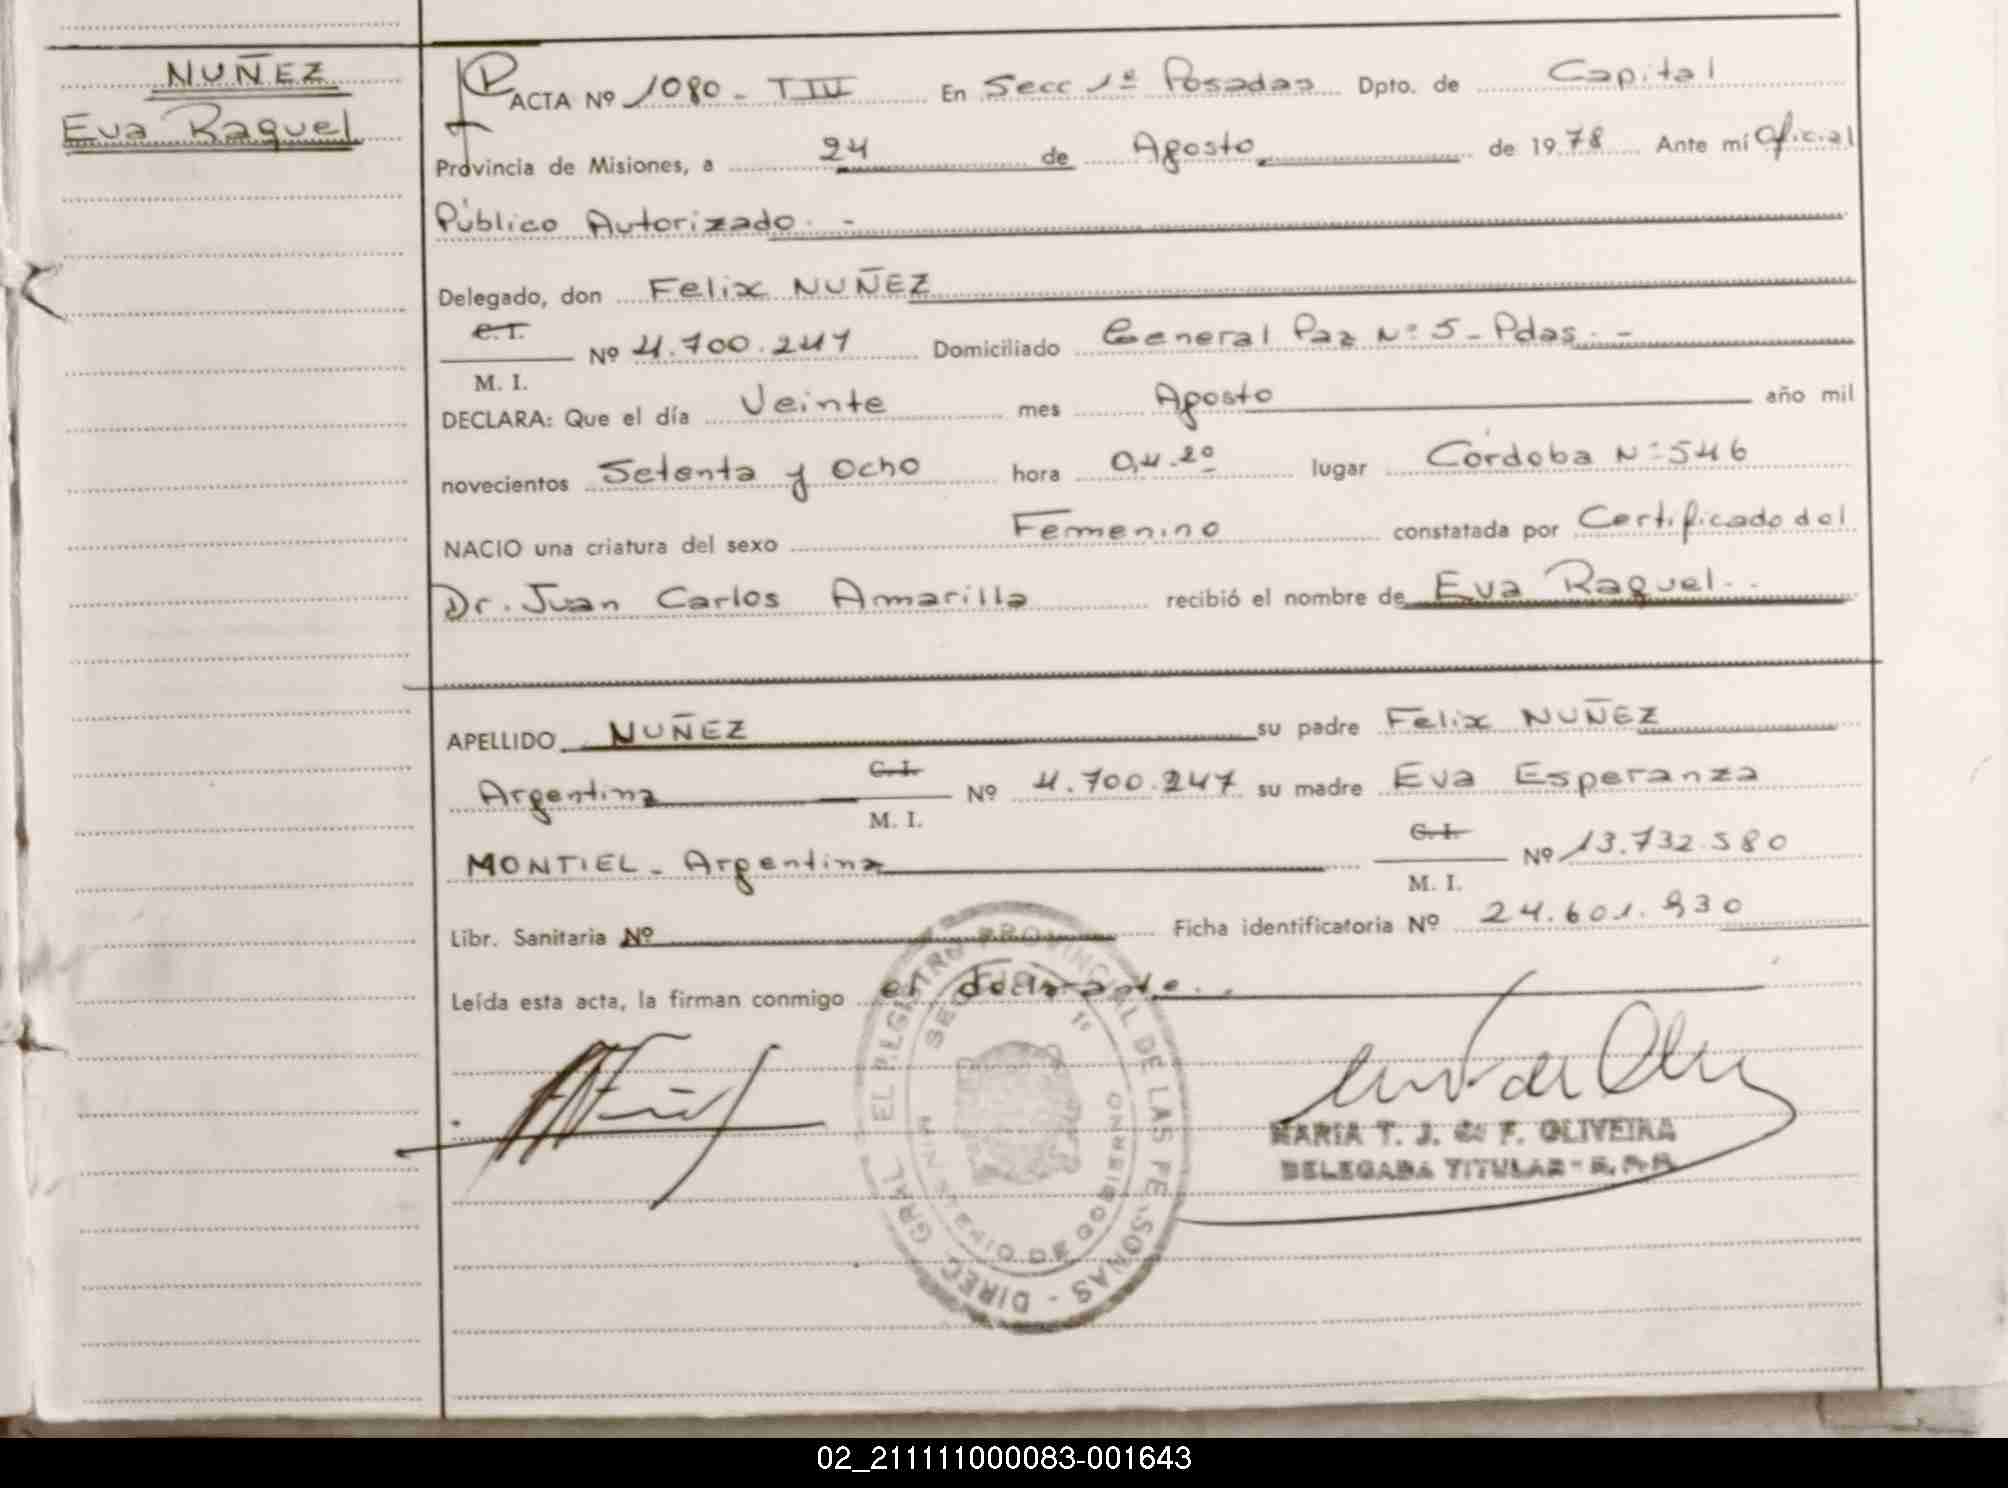 NUÑEZ
Eva Raquel
ACTA Nº 1080 - TIII En Secc 1ª Posadas Dpto. de Capital
Provincia de Misiones, a 24 de Agosto de 1978 Ante mí Oficial
Público Autorizado. -
Delegado, don Felix NUÑEZ
C.I.
M. I. Nº 4.700.247 Domiciliado General Paz Nº 5 - Pdas. -
DECLARA: Que el día Veinte mes Agosto año mil
novecientos Setenta y Ocho hora 04.20 lugar Córdoba Nº 546
NACIO una criatura del sexo Femenino constatada por Certificado del
Dr. Juan Carlos Amarilla recibió el nombre de Eva Raquel. -
APELLIDO NUÑEZ su padre Felix NUÑEZ
Argentina C.I. M. I. Nº 4.700.247 su madre Eva Esperanza
MONTIEL - Argentina C.I. M. I. Nº 13.732.580
Libr. Sanitaria Nº Ficha identificatoria Nº 24.601.930
Leída esta acta, la firman conmigo el declarante. -
MARIA T. J. de F. OLIVEIRA
DELEGADA TITULAR - R.P.P.
PROVINCIAL DE LAS PERSONAS - DIREC GRAL
SECC 1ª
MINISTERIO DE GOBIERNO
02_211111000083-001643